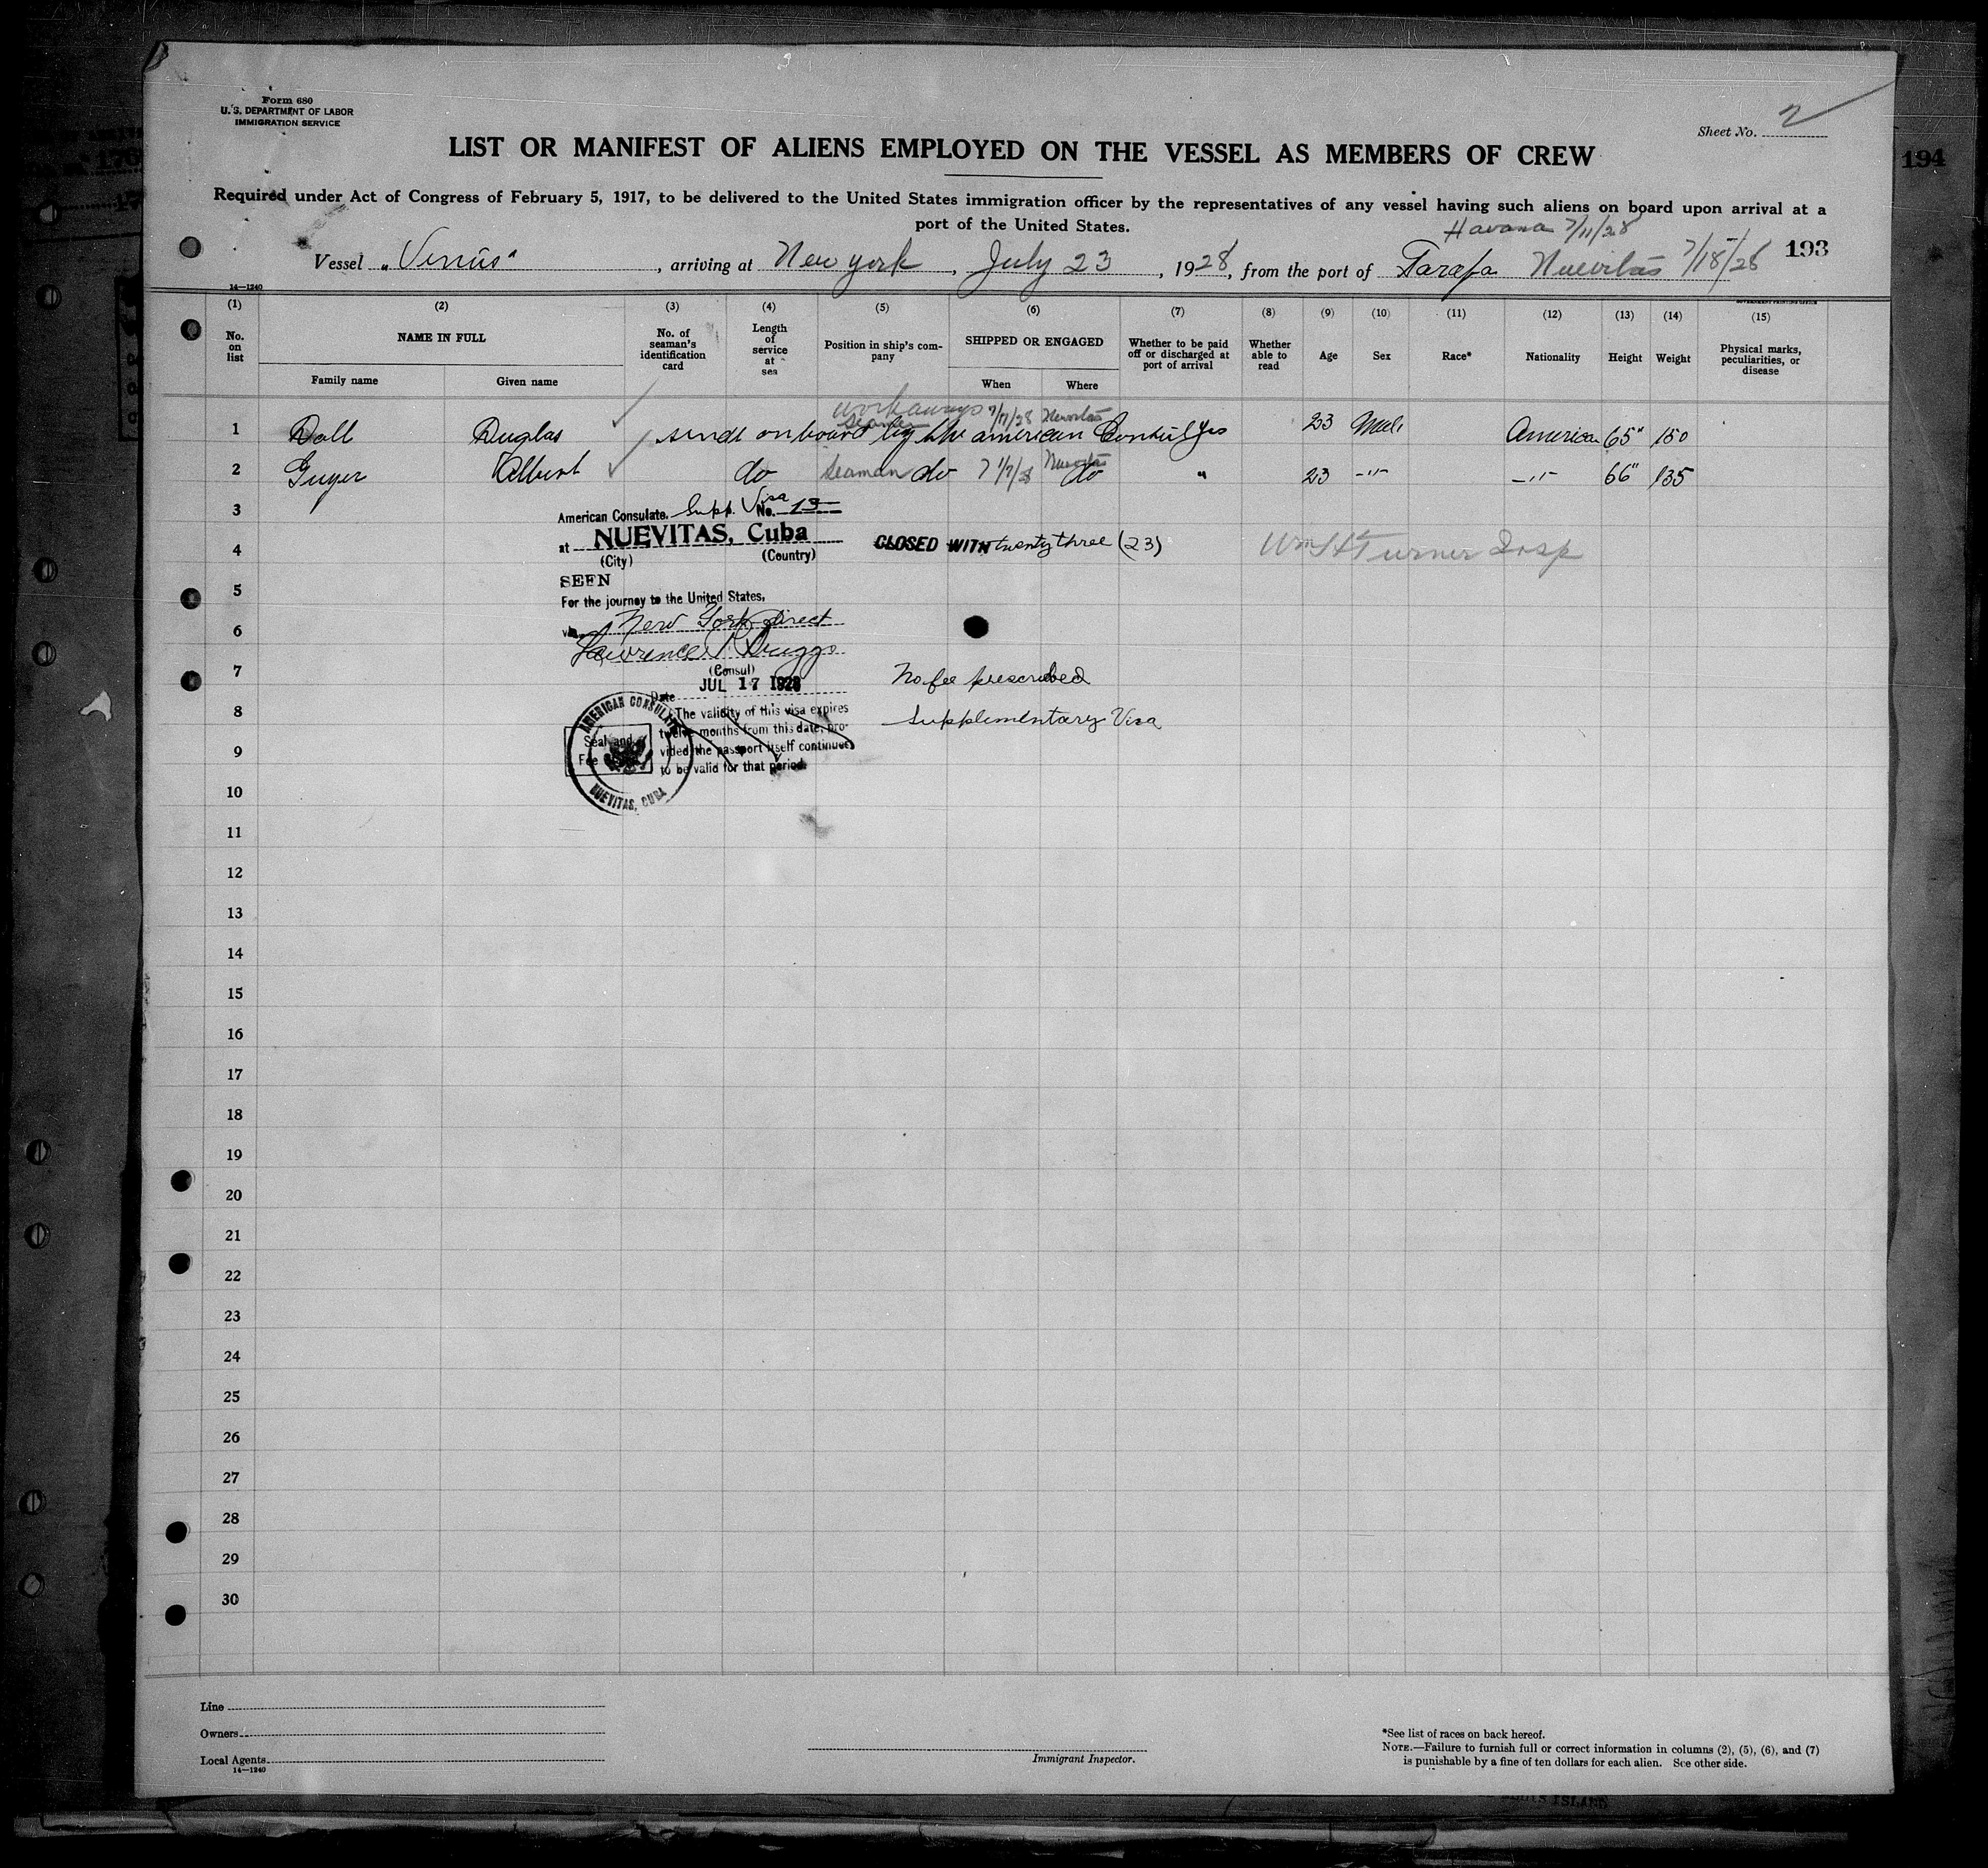 Form 680
U. S. DEPARTMENT OF LABOR
IMMIGRATION SERVICE
Sheet No. 2
LIST OR MANIFEST OF ALIENS EMPLOYED ON THE VESSEL AS MEMBERS OF CREW
194
Required under Act of Congress of February 5, 1917, to be delivered to the United States immigration officer by the representatives of any vessel having such aliens on board upon arrival at a
port of the United States.
Havana 7/11/28
193
Vessel "Venus", arriving at New York, July 23, 1928, from the port of Tarafa Nuevitas 7/18/28
14—1240
GOVERNMENT PRINTING OFFICE
(1) (2) (3) (4) (5) (6) (7) (8) (9) (10) (11) (12) (13) (14) (15)
No. on list
NAME IN FULL
Family name
Given name
No. of seaman's identification card
Length of service at sea
Position in ship's company
SHIPPED OR ENGAGED
When
Where
Whether to be paid off or discharged at port of arrival
Whether able to read
Age
Sex
Race*
Nationality
Height
Weight
Physical marks, peculiarities, or disease
workaways 7/17/28 Nuevitas
Seaman
1 Doll Duglas sendt on board by the american Consul yes 23 Male American 65" 150
2 Guyer Albert do Seaman do 7/17/28 Nuevitas do " 23 -"- -"- 66" 135
3
American Consulate. Supp. Visa No. 13
at NUEVITAS, Cuba
(City) (Country)
4 CLOSED WITH twenty three (23) Wm H Turner Insp
SEEN
5
For the journey to the United States,
6
via New York Direct
Lawrence P. Briggs
(Consul)
7 No fee prescribed
Date JUL 17 1928
8 Supplementary Visa
The validity of this visa expires
twelve months from this date, pro-
vided the passport itself continues
to be valid for that period.
Seal and
Fee
AMERICAN CONSULATE
NUEVITAS, CUBA
9
10
11
12
13
14
15
16
17
18
19
20
21
22
23
24
25
26
27
28
29
30
Line
Owners
Local Agents
14—1240
Immigrant Inspector.
*See list of races on back hereof.
NOTE.—Failure to furnish full or correct information in columns (2), (5), (6), and (7)
is punishable by a fine of ten dollars for each alien. See other side.